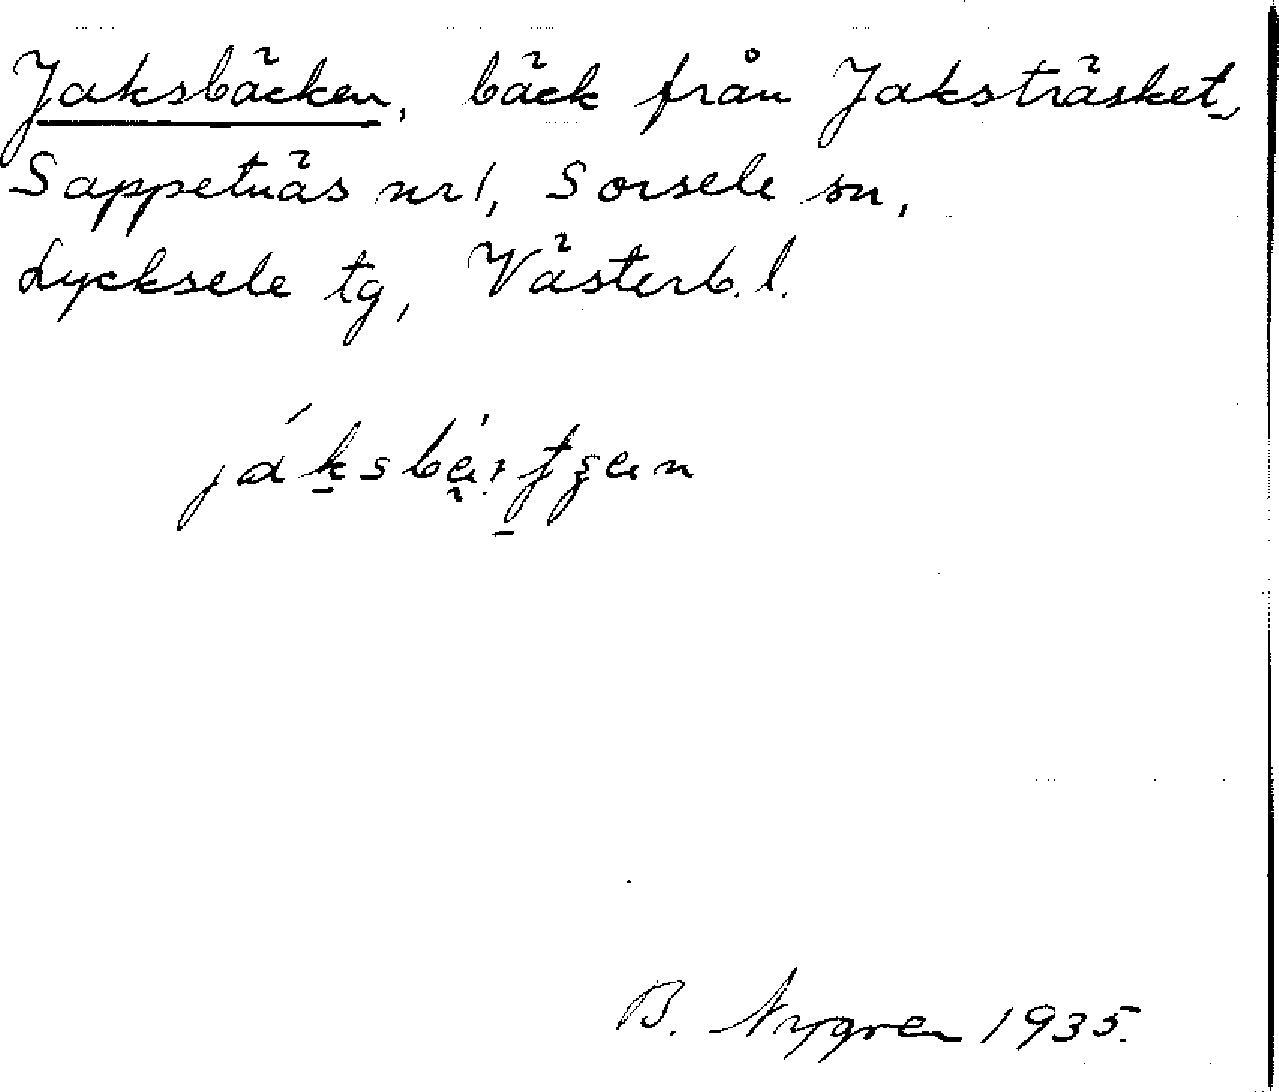 Jaksbäcken, bäck från Jaksträsket,
Sappetnäs nr 1, Sorsele sn,
Lycksele tg, Västerb. l.
B. Nygren 1935.